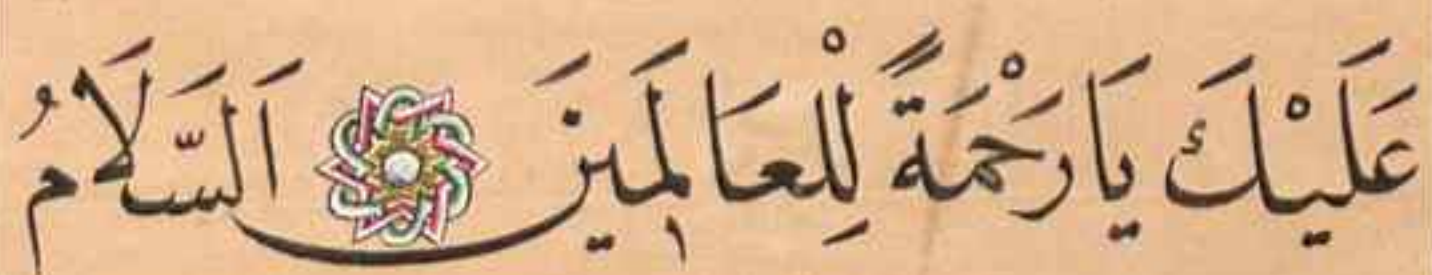 عَلَيْكَ يَارَحْمَةً لِلْعَالَمِينَ اَلسَّلَامُ